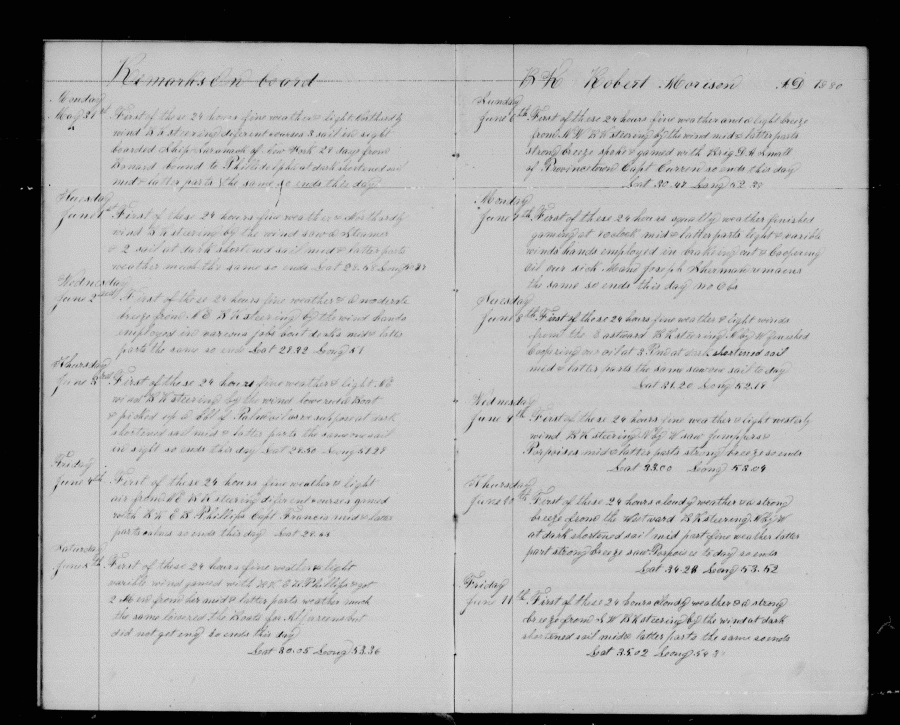 Remarks on board
Monday
May 31st First of these 24 hours fine weather & light Eatherdly
wind steering diferent courses 3 sail in sight
boarded Ship of New York 28 days from
bound to Philladelphi at dark shortened sail
mid & latter parts the same so ends this day
Tuesday
June 1st First of these 24 hours fine weather & Northardly
wind steering by the wind saw a Steamer
& 2 sail at dark shortened sail mid & latter parts
weather much the same so ends Lat 28.48 Long
Wednesday
June 2 First of these 24 hours fine weather & a moderate
breeze from N E steering by the wind hands
employed in jobs bout decks mid & latter
parts the same so ends Lat 28.32 Long 51
Thursday
June 3 First of these 24 hours fine weather & light
wind steering by the wind lowered a Boat
& picked up a of Palm oil as we suppose at dark
shortened sail mid & latter parts the same one sail
in sight so ends this day Lat 28.50 Long 51.28
Friday
June 4th First of these 24 hours fine weather & light
air from steering diferent courses gamed
with Phillips Capt Francis mid & latter
parts calms so ends this day Lat 28.
Saturday
June 5th First of these 24 hours fine weather & light
varible wind gamed with Phillips & got
2 Men from her mid & latter parts weather much
the same lowered the Boats for but
did not get any so ends this day
Lat 30.05 Long 53.36
Robert Morison AD 1880
Sunday
June 6th First of these 24 hours fine weather and a light breeze
from steering by the wind mid & latter parts
strong breeze spoke & gamed with Brig D A Small
of Provincetown Capt so ends this day
Lat 30.47 Long 52.
Monday
June 7th First of these 24 hours squally weather finished
gaming at oclock mid & latter parts light & varible
winds hands employed in breaking out & Coopering
oil our sick Mand Joseph Sherman remaens
the same so ends this day no Obs
Tuesday
June 8th First of these 24 hours fine weather & light winds
from the Eastward steering N by W finished
Coopering our oil at 3 P M at dark shortened sail
mid & latter parts the same saw one sail to day
Lat 31.20 Long 52.18
Wednesday
June 9th First of these 24 hours fine weather & light westerly
wind steering N by W saw Jumppers &
Porpoises mid & latter parts strong breeze so ends
Lat 33.00 Long 53.04
Thursday
June 10th First of these 24 hours cloudy weather & a strong
breeze from the Westward steering N by W
at dark shortened sail mid part fine weather latter
part strong breeze saw Porpoises to day so ends
Lat 34.28 Long 53.52
Friday
June 11th First of these 24 hours cloudy weather & a strong
breeze from S W steering by the wind at dark
shortened sail mid & latter parts the same so ends
Lat 35.02 Long 54.3